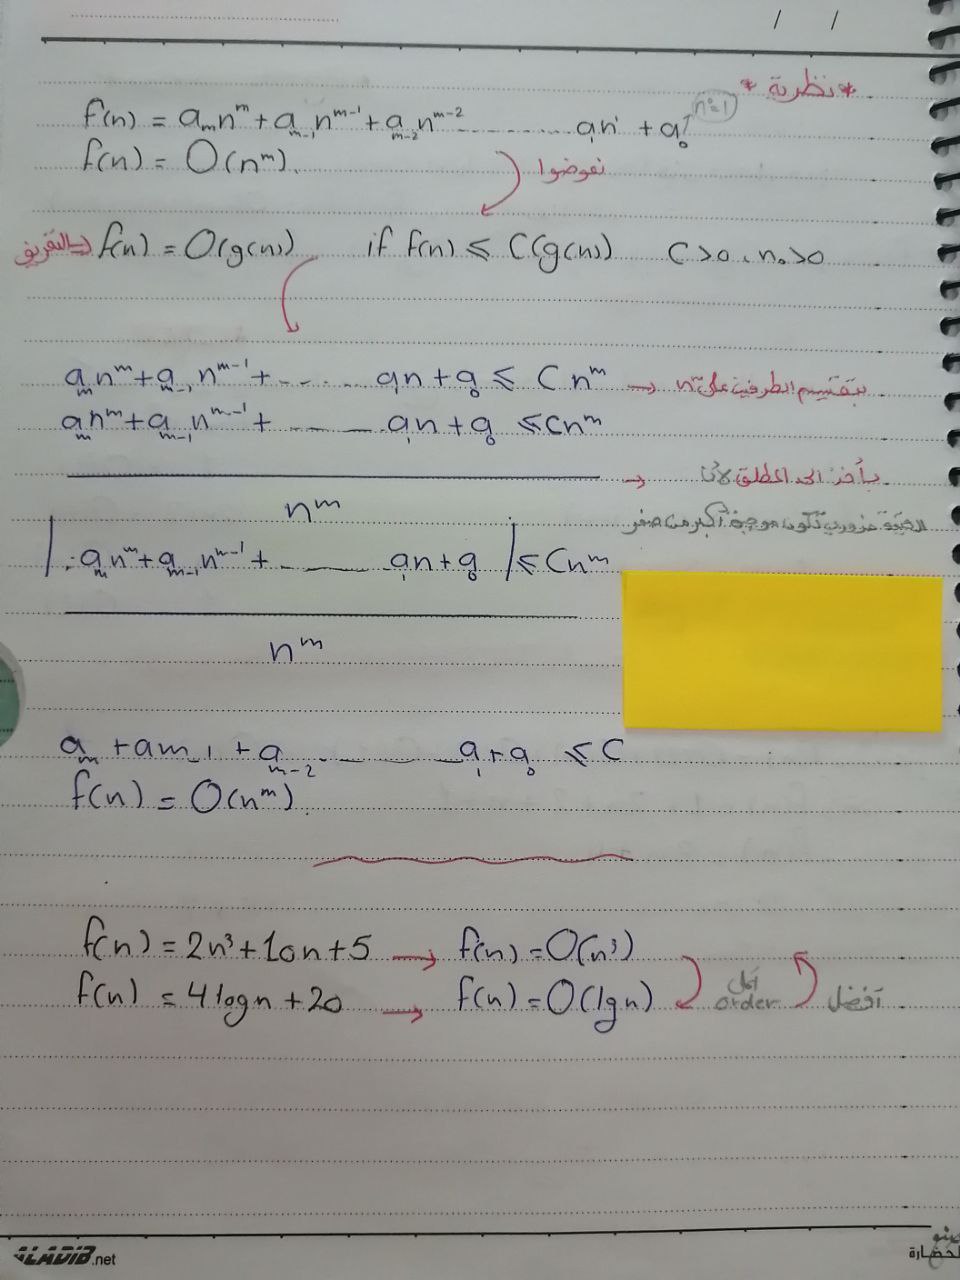 / /
* نظرية *
f(n) = aₘnᵐ + aₘ₋₁nᵐ⁻¹ + aₘ₋₂nᵐ⁻² ........ a₁n¹ + a₀ n⁰=1
f(n) = O(nᵐ).
نعوضوا
f(n) = O(g(n)) if f(n) ≤ C(g(n)) C>0, n₀>0
aₘnᵐ + aₘ₋₁nᵐ⁻¹ + ...... a₁n + a₀ ≤ Cnᵐ → بتقسيم الطرفين على nᵐ
aₘnᵐ + aₘ₋₁nᵐ⁻¹ + ...... a₁n + a₀ ≤ Cnᵐ
→ بأخذ الحد المطلق لأن
nᵐ
القيمة ضروري تكون موجبة أكبر من صفر
| aₘnᵐ + aₘ₋₁nᵐ⁻¹ + ...... a₁n + a₀ | ≤ Cnᵐ
nᵐ
aₘ + am₋₁ + aₘ₋₂ ........ a₁ + a₀ ≤ C
f(n) = O(nᵐ).
f(n) = 2n³ + 10n + 5 → f(n) = O(n³)
f(n) = 4logn + 20 → f(n) = O(lgn) أقل order أفضل
ALADIB.net